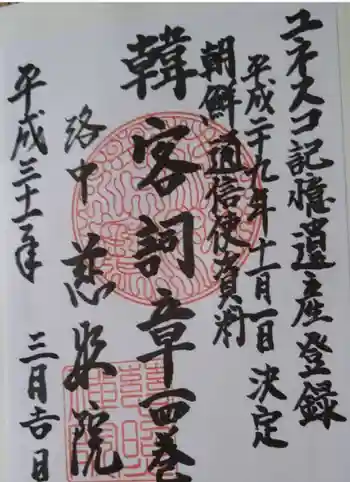 ユネスコ記憶遺産登録
平成二十九年十一月一日決定
朝鮮通信使資料
韓客詞章四巻
洛中 慈照院
平成三十一年 三月吉日